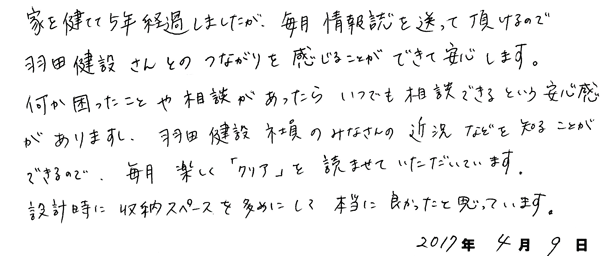 家を建てて5年経過しましたが、毎月情報誌を送って頂けるので
羽田健設さんとのつながりを感じることができて安心します。
何か困ったことや相談があったらいつでも相談できるという安心感
がありますし、羽田健設社員のみなさんの近況などを知ることが
できるので、毎月楽しく「クリア」を読ませていただいています。
設計時に収納スペースを多めにして本当に良かったと思っています。
2017年4月9日